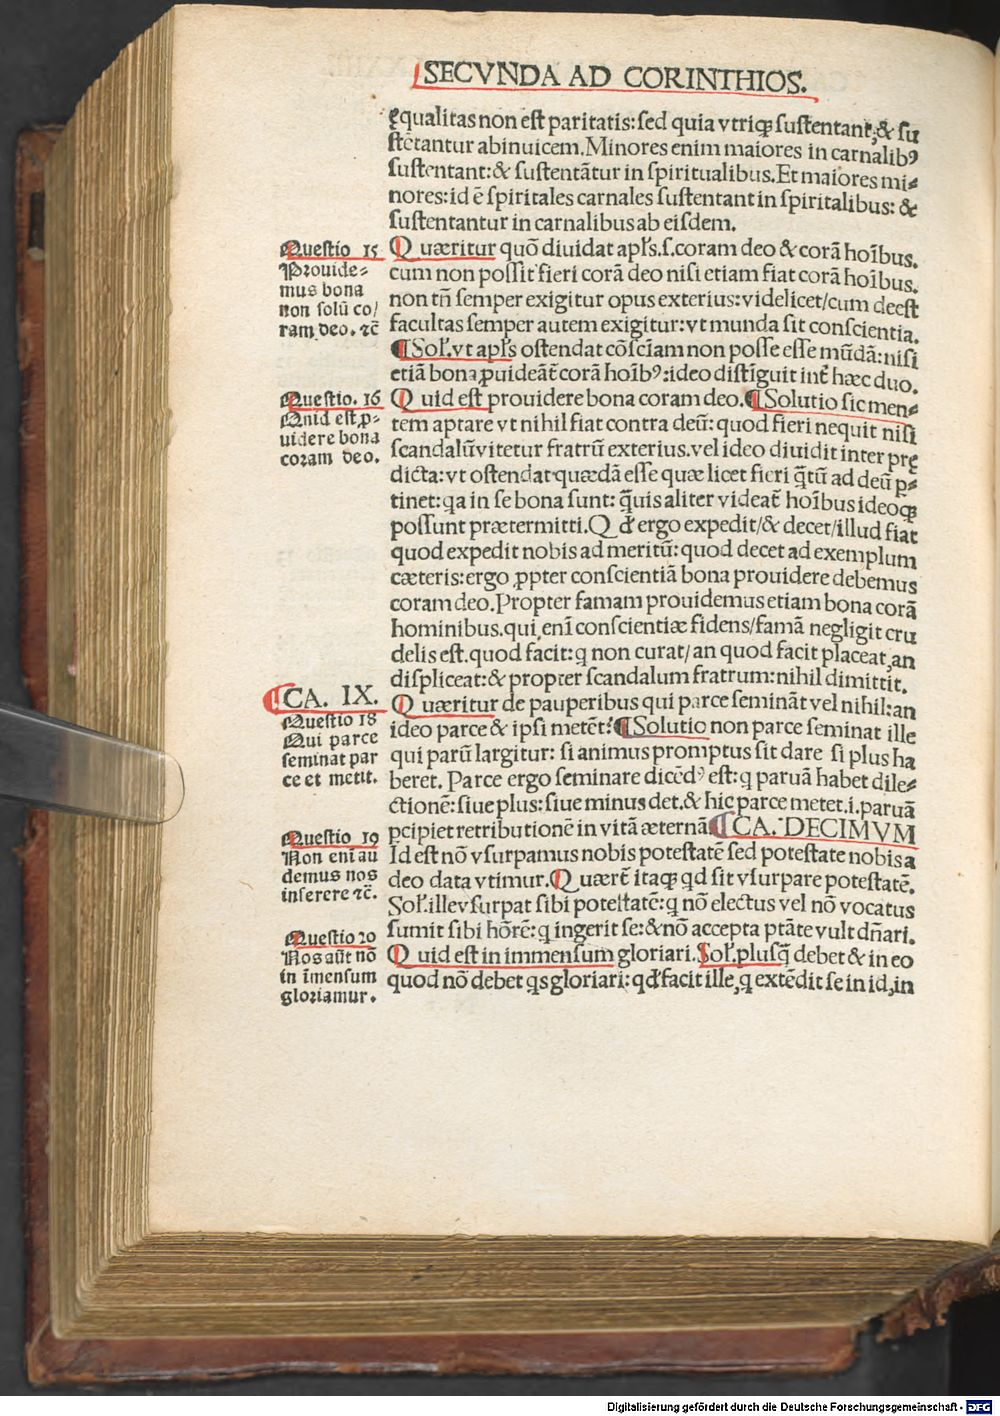 SECVNDA AD CORINTHIOS.
ęqualitas non eſt paritatis: ſed quia vtriqꝫ ſuſtentant, & ſu
ſtētantur abinuicem. Minores enim maiores in carnalibꝰ
ſuſtentant: & ſuſtentātur in ſpiritualibus. Et maiores mi-
nores: id ē ſpiritales carnales ſuſtentant in ſpiritalibus: &
ſuſtentantur in carnalibus ab eiſdem.
Queſtio 15
Prouide-
mus bona
non ſolū co/
ram deo. ⁊c̄
Quæritur quō diuidat apl's. ſ. coram deo & corā hoībus.
cum non poſſit fieri corā deo niſi etiam fiat corā hoībus.
non tn̄ ſemper exigitur opus exterius: videlicet/cum deeſt
facultas ſemper autem exigitur: vt munda ſit conſcientia.
¶ Sol'. vt apl's oſtendat cōſciam non poſſe eſſe mūdā: niſi
etiā bona ꝓuideāt corā hoībꝰ: ideo diſtīguit int̄ hæc duo.
Queſtio. 16
Quid eſt, p-
uidere bona
coram deo.
Quid eſt prouidere bona coram deo. ¶ Solutio ſic men-
tem aptare vt nihil fiat contra deū: quod fieri nequit niſi
ſcandalū vitetur fratrū exterius. vel ideo diuidit inter prę
dicta: vt oſtendat quædā eſſe quæ licet fieri q̄tū ad deū ꝑ-
tinet: qa in ſe bona ſunt: q̄uis aliter videat̄ hoībus ideoqꝫ
poſſunt prætermitti. Qd' ergo expedit/& decet/illud fiat
quod expedit nobis ad meritū: quod decet ad exemplum
cæteris: ergo ꝓpter conſcientiā bona prouidere debemus
coram deo. Propter famam prouidemus etiam bona corā
hominibus. qui, enī conſcientiæ fidens/famā negligit cru
delis eſt. quod facit: q non curat/an quod facit placeat, an
diſpliceat: & propter ſcandalum fratrum: nihil dimittit.
¶ CA. IX.
Queſtio 18
Qui parce
ſeminat par
ce et metit.
Quæritur de pauperibus qui parce ſemināt vel nihil: an
ideo parce & ipſi metēt? ¶ Solutio non parce ſeminat ille
qui parū largitur: ſi animus promptus ſit dare ſi plus ha
beret. Parce ergo ſeminare dicēdꝰ eſt: q paruā habet dile-
ctionē: ſiue plus: ſiue minus det. & hic parce metet. i. paruā
pcipiet retributionē in vitā æternā ¶ CA. DECIMVM
Queſtio 19
Non enī au
demus nos
inſerere ⁊c̄.
Id eſt nō vſurpamus nobis poteſtatē ſed poteſtate nobis a
deo data vtimur. Quært̄ itaqꝫ qd ſit vſurpare poteſtatē.
Sol'. ille vſurpat ſibi poteſtatē: q nō electus vel nō vocatus
ſumit ſibi hōrē: q ingerit ſe: & nō accepta ptāte vult dn̄ari.
Queſtio 20
Nos aūt nō
in īmenſum
gloriamur.
Quid eſt in immenſum gloriari. Sol'. pluſq̄ debet & in eo
quod nō debet qs gloriari: qd' facit ille, q extēdit ſe in id, in
Digitalisierung gefördert durch die Deutsche Forschungsgemeinschaft - DFG